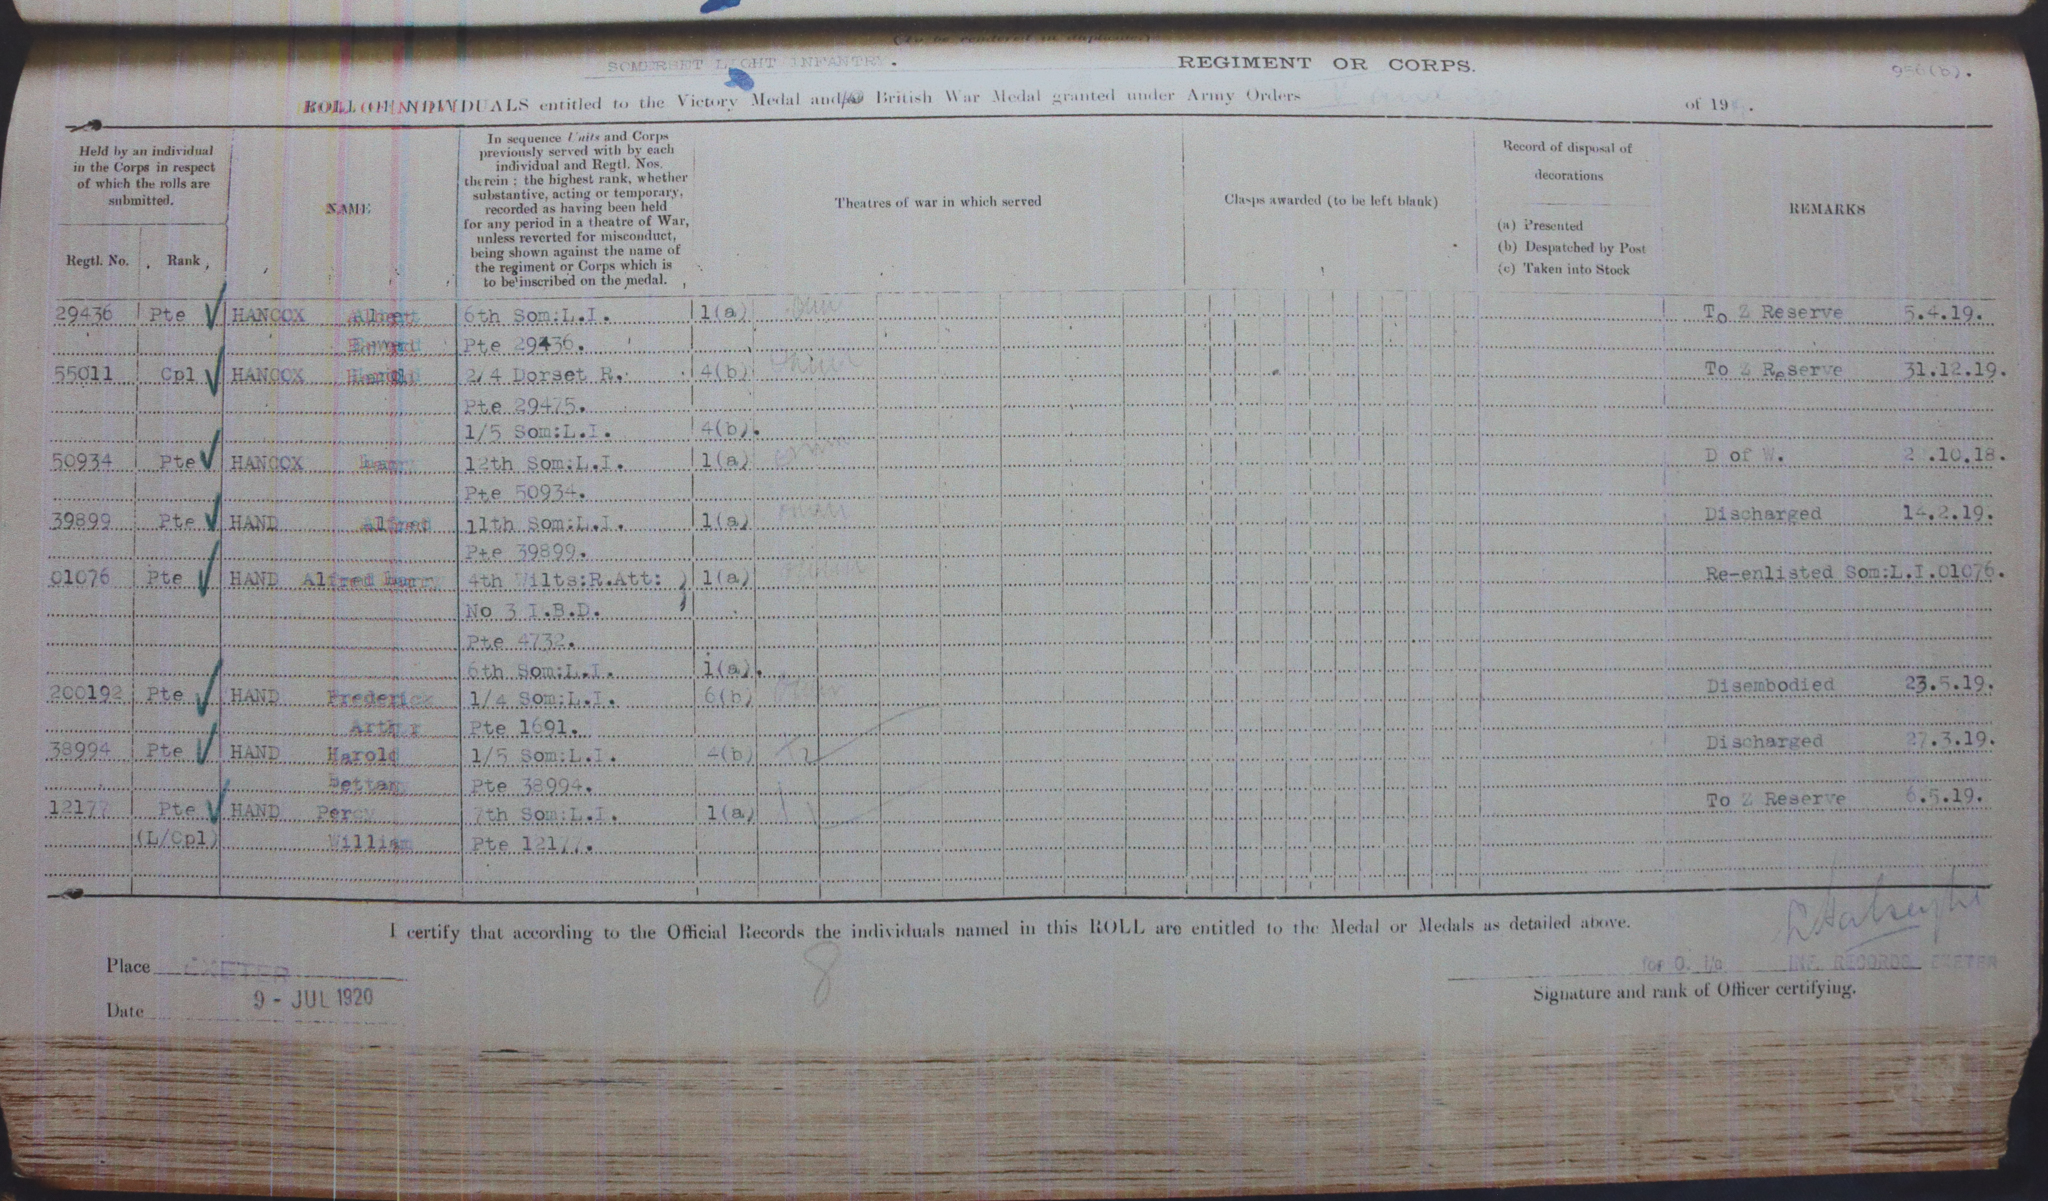 (To be rendered in duplicate.)
SOMERSET LIGHT INFANTRY. REGIMENT OR CORPS. 956(b).
ROLL OF INDIVIDUALS entitled to the Victory Medal and/or British War Medal granted under Army Orders of 19
Held by an individual in the Corps in respect of which the rolls are submitted.
Regtl. No. Rank
NAME
In sequence Units and Corps previously served with by each individual and Regtl. Nos. therein ; the highest rank, whether substantive, acting or temporary, recorded as having been held for any period in a theatre of War, unless reverted for misconduct, being shown against the name of the regiment or Corps which is to be inscribed on the medal.
Theatres of war in which served
Clasps awarded (to be left blank)
Record of disposal of decorations
(a) Presented
(b) Despatched by Post
(c) Taken into Stock
REMARKS
29436 Pte HANCOX Albert 6th Som:L.I. 1(a) To Z Reserve 5.4.19.
Edward Pte 29436.
55011 Cpl HANCOX Harold 2/4 Dorset R. 4(b) To Z Reserve 31.12.19.
Pte 29475.
1/5 Som:L.I. 4(b).
50934 Pte HANCOX Harry 12th Som:L.I. 1(a) D of W. .10.18.
Pte 50934.
39899 Pte HAND Alfred 11th Som:L.I. 1(a) Discharged 14.2.19.
Pte 39899.
01076 Pte HAND Alfred Harry 4th Wilts:R.Att: ) 1(a) Re-enlisted Som:L.I.01076.
No 3 I.B.D. )
Pte 4732.
6th Som:L.I. 1(a).
200192 Pte HAND Frederick 1/4 Som:L.I. 6(b) Disembodied 23.5.19.
Arthur Pte 1691.
38994 Pte HAND Harold 1/5 Som:L.I. 4(b) Discharged 27.3.19.
Bettany Pte 38994.
12177 Pte HAND Percy 7th Som:L.I. 1(a) To Z Reserve 6.5.19.
(L/Cpl) William Pte 12177.
I certify that according to the Official Records the individuals named in this ROLL are entitled to the Medal or Medals as detailed above.
8
Place EXETER
for O. i/c INF. RECORDS EXETER
Date 9 - JUL 1920
Signature and rank of Officer certifying.